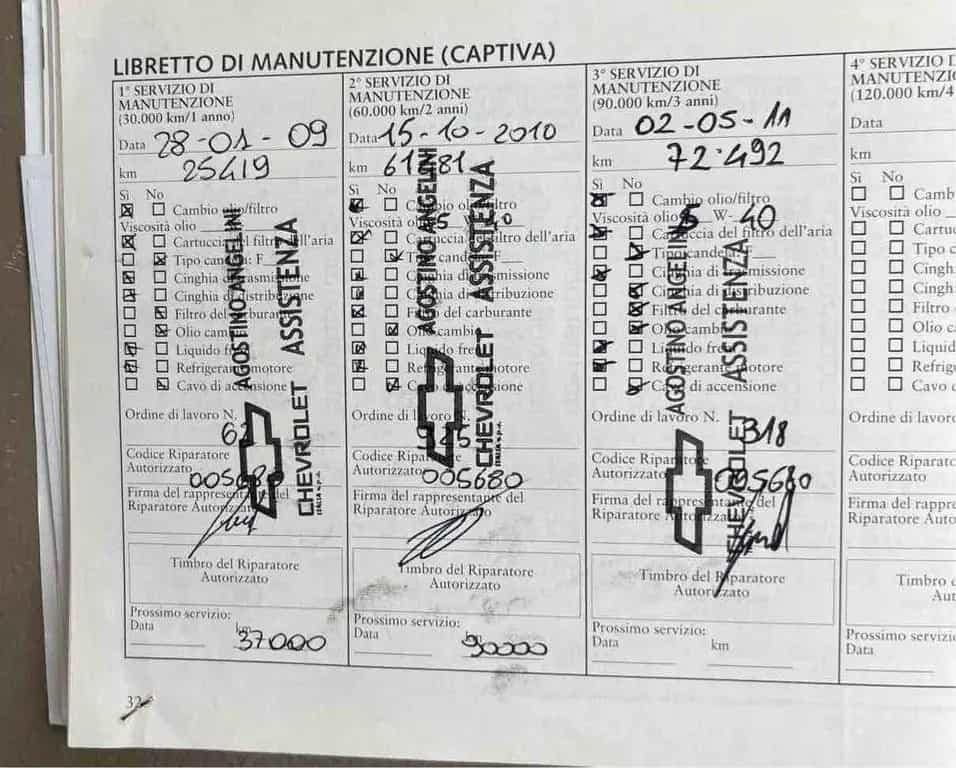 LIBRETTO DI MANUTENZIONE (CAPTIVA)
1° SERVIZIO DI
MANUTENZIONE
(30.000 km/1 anno)
Data 28-01-09
km 25419
Sì No
Cambio olio/filtro
Viscosità olio
Cartuccia del filtro dell'aria
Tipo candela: F
Cinghia di trasmissione
Cinghia di distribuzione
Filtro del carburante
Olio cambio
Liquido freni
Refrigerante motore
Cavo di accensione
Ordine di lavoro N.
Codice Riparatore
Autorizzato 005680
Firma del rappresentante del
Riparatore Autorizzato
AGOSTINO ANGELINI
ASSISTENZA
CHEVROLET
ITALIA s.p.a.
Timbro del Riparatore
Autorizzato
Prossimo servizio:
Data km 37000
2° SERVIZIO DI
MANUTENZIONE
(60.000 km/2 anni)
Data 15-10-2010
km
Sì No
Cambio olio/filtro
Viscosità olio
Cartuccia del filtro dell'aria
Tipo candela: F
Cinghia di trasmissione
Cinghia di distribuzione
Filtro del carburante
Olio cambio
Liquido freni
Refrigerante motore
Cavo di accensione
Ordine di lavoro N.
Codice Riparatore
Autorizzato 005680
Firma del rappresentante del
Riparatore Autorizzato
AGOSTINO ANGELINI
ASSISTENZA
CHEVROLET
ITALIA s.p.a.
Timbro del Riparatore
Autorizzato
Prossimo servizio:
Data km 90000
3° SERVIZIO DI
MANUTENZIONE
(90.000 km/3 anni)
Data 02-05-11
km 72.492
Sì No
Cambio olio/filtro
Viscosità olio 5 W-40
Cartuccia del filtro dell'aria
Tipo candela: F
Cinghia di trasmissione
Cinghia di distribuzione
Filtro del carburante
Olio cambio
Liquido freni
Refrigerante motore
Cavo di accensione
Ordine di lavoro N.
318
Codice Riparatore
Autorizzato 005680
Firma del rappresentante del
Riparatore Autorizzato
AGOSTINO ANGELINI
ASSISTENZA
CHEVROLET
Timbro del Riparatore
Autorizzato
Prossimo servizio:
Data km
4° SERVIZIO D
MANUTENZI
(120.000 km/4
Data
km
Sì No
Camb
Viscosità olio
Cartu
Tipo c
Cingh
Cingh
Filtro
Olio c
Liquid
Refrig
Cavo d
Ordine di lavoro
Codice Riparato
Autorizzato
Firma del rappre
Riparatore Auto
Timbro d
Aut
Prossimo servizi
Data
32